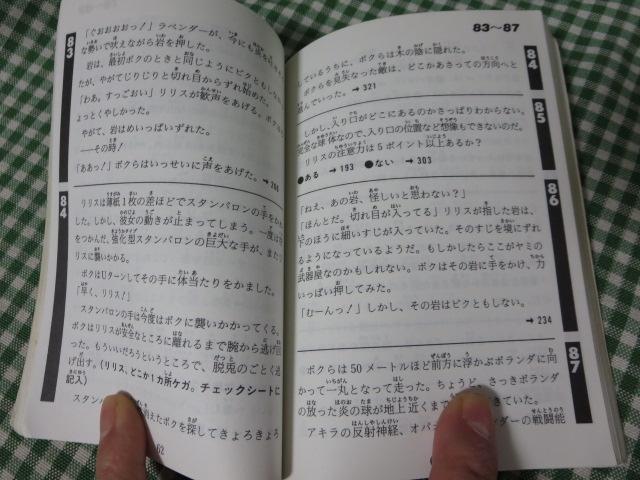 83
「ぐおおおおっ!」ラベンダーが、今にも
な勢いで吠えながら岩を押した。
岩は、最初ボクのときと同じようにビクともしな
たが、やがてじりじりと切れ目からずれ始めた。
「わあ。すっごおい」リリスが歓声をあげる。ボクの
ょっとくやしかった。
やがて、岩はめいっぱいずれた。
―その時!
「ああっ!」ボクらはいっせいに声をあげた。→
84
リリスは薄紙1枚の差ほどでスタンバロンの手を
した。しかし、彼女の動きが止まってしまう。一度は
をつかんだ、強化型スタンバロンの巨大な手が、また
リスに襲いかかる。
ボクはUターンしてその手に体当たりをかました。
「早く、リリス!」
スタンバロンの手は今度はボクに襲いかかってくる。
ボクはリリスが安全なところに離れるまで腕から逃げ回
った。もういいだろうというところで、脱兎のごとく逃
げ出す。(リリス、どこか1カ所ケガ。チェックシートに
記入)
スタンバ
消えたボクを探してきょろきょろ
62
83〜87
84
しているうちに、ボクらは木の陰に隠れた。
ボクらを見失なった敵は、どこかあさっての方向へと
進んでいった。→321
85
しかし、入り口がどこにあるのかさっぱりわからない。
完全な球体なので、入り口の位置など想像もできないのだ。
リリスの注意力は5ポイント以上あるか?
●ある →193 ●ない →303
86
「ねえ、あの岩、怪しいと思わない?」
「ほんとだ。切れ目が入ってる」リリスが指した岩は、
下のほうに細いすじが入っていた。そのすじを境にずれ
るようになっているようだ。もしかしたらここがヤミの
武器屋なのかもしれない。ボクはその岩に手をかけ、力
いっぱい押してみた。
「むーんっ!」しかし、その岩はビクともしない。
→234
87
ボクらは50メートルほど前方に浮かぶボランダに向
かって一丸となって走った。ちょうど、さっきボランダ
の放った炎の球が地上近くま
きていた。
アキラの反射神経、オパ
ダーの戦闘能